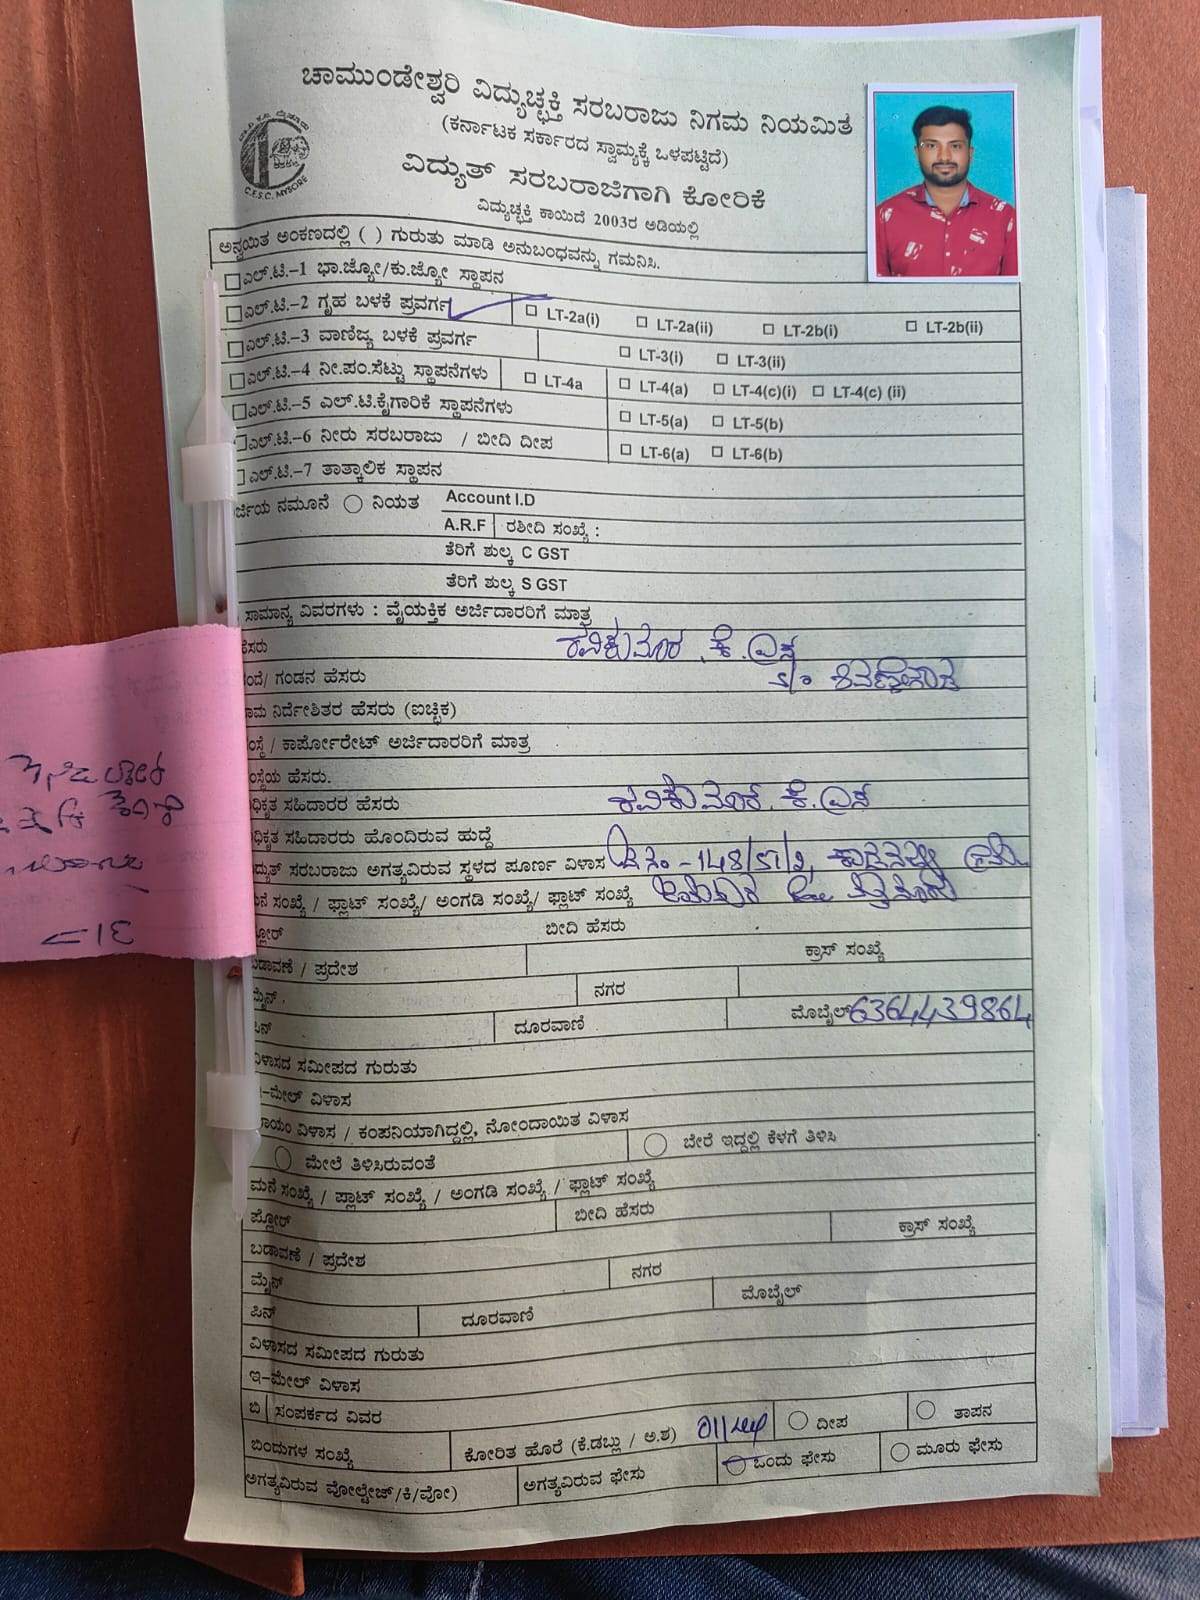 ಚಾಮುಂಡೇಶ್ವರಿ ವಿದ್ಯುಚ್ಛಕ್ತಿ ಸರಬರಾಜು ನಿಗಮ ನಿಯಮಿತ
(ಕರ್ನಾಟಕ ಸರ್ಕಾರದ ಸ್ವಾಮ್ಯಕ್ಕೆ ಒಳಪಟ್ಟಿದೆ)
C.E.S.C. MYSORE
ವಿದ್ಯುತ್ ಸರಬರಾಜಿಗಾಗಿ ಕೋರಿಕೆ
ವಿದ್ಯುಚ್ಛಕ್ತಿ ಕಾಯಿದೆ 2003ರ ಅಡಿಯಲ್ಲಿ
ಅನ್ವಯಿತ ಅಂಕಣದಲ್ಲಿ ( ) ಗುರುತು ಮಾಡಿ ಅನುಬಂಧವನ್ನು ಗಮನಿಸಿ.
ಎಲ್.ಟಿ.–1 ಭಾ.ಜ್ಯೋ/ಕು.ಜ್ಯೋ ಸ್ಥಾಪನ
ಎಲ್.ಟಿ.–2 ಗೃಹ ಬಳಕೆ ಪ್ರವರ್ಗ LT-2a(i) LT-2a(ii) LT-2b(i) LT-2b(ii)
ಎಲ್.ಟಿ.–3 ವಾಣಿಜ್ಯ ಬಳಕೆ ಪ್ರವರ್ಗ LT-3(i) LT-3(ii)
ಎಲ್.ಟಿ.–4 ನೀ.ಪಂ.ಸೆಟ್ಟು ಸ್ಥಾಪನೆಗಳು LT-4a LT-4(a) LT-4(c)(i) LT-4(c) (ii)
ಎಲ್.ಟಿ.–5 ಎಲ್.ಟಿ.ಕೈಗಾರಿಕೆ ಸ್ಥಾಪನೆಗಳು LT-5(a) LT-5(b)
ಎಲ್.ಟಿ.–6 ನೀರು ಸರಬರಾಜು / ಬೀದಿ ದೀಪ LT-6(a) LT-6(b)
ಎಲ್.ಟಿ.–7 ತಾತ್ಕಾಲಿಕ ಸ್ಥಾಪನ
ರ್ಜಿಯ ನಮೂನೆ ನಿಯತ Account I.D
A.R.F ರಶೀದಿ ಸಂಖ್ಯೆ :
ತೆರಿಗೆ ಶುಲ್ಕ C GST
ತೆರಿಗೆ ಶುಲ್ಕ S GST
ಸಾಮಾನ್ಯ ವಿವರಗಳು : ವೈಯಕ್ತಿಕ ಅರ್ಜಿದಾರರಿಗೆ ಮಾತ್ರ
ಹೆಸರು ರವಿಕುಮಾರ. ಕೆ.ಎಸ್
ಂದೆ/ ಗಂಡನ ಹೆಸರು S/o
ಾಮ ನಿರ್ದೇಶಿತರ ಹೆಸರು (ಐಚ್ಛಿಕ)
ಂಸ್ಥೆ / ಕಾರ್ಪೋರೇಟ್ ಅರ್ಜಿದಾರರಿಗೆ ಮಾತ್ರ
ಂಸ್ಥೆಯ ಹೆಸರು.
ಧಿಕೃತ ಸಹಿದಾರರ ಹೆಸರು ರವಿಕುಮಾರ. ಕೆ.ಎಸ್
ಧಿಕೃತ ಸಹಿದಾರರು ಹೊಂದಿರುವ ಹುದ್ದೆ
ದ್ಯುತ್ ಸರಬರಾಜು ಅಗತ್ಯವಿರುವ ಸ್ಥಳದ ಪೂರ್ಣ ವಿಳಾಸ
ನೆ ಸಂಖ್ಯೆ / ಫ್ಲಾಟ್ ಸಂಖ್ಯೆ/ ಅಂಗಡಿ ಸಂಖ್ಯೆ/ ಫ್ಲಾಟ್ ಸಂಖ್ಯೆ
್ಲೋರ್ ಬೀದಿ ಹೆಸರು
ಬಡಾವಣೆ / ಪ್ರದೇಶ ಕ್ರಾಸ್ ಸಂಖ್ಯೆ
ಮೈನ್. ನಗರ
ಪಿನ್ ದೂರವಾಣಿ ಮೊಬೈಲ್ 6364439864
ವಿಳಾಸದ ಸಮೀಪದ ಗುರುತು
–ಮೇಲ್ ವಿಳಾಸ
ಾಯಂ ವಿಳಾಸ / ಕಂಪನಿಯಾಗಿದ್ದಲ್ಲಿ, ನೋಂದಾಯಿತ ವಿಳಾಸ
ಮೇಲೆ ತಿಳಿಸಿರುವಂತೆ ಬೇರೆ ಇದ್ದಲ್ಲಿ ಕೆಳಗೆ ತಿಳಿಸಿ
ಮನೆ ಸಂಖ್ಯೆ / ಪ್ಲಾಟ್ ಸಂಖ್ಯೆ / ಅಂಗಡಿ ಸಂಖ್ಯೆ / ಫ್ಲಾಟ್ ಸಂಖ್ಯೆ
ಪ್ಲೋರ್ ಬೀದಿ ಹೆಸರು
ಬಡಾವಣೆ / ಪ್ರದೇಶ ಕ್ರಾಸ್ ಸಂಖ್ಯೆ
ಮೈನ್ ನಗರ
ಪಿನ್ ದೂರವಾಣಿ ಮೊಬೈಲ್
ವಿಳಾಸದ ಸಮೀಪದ ಗುರುತು
ಇ–ಮೇಲ್ ವಿಳಾಸ
ಬಿ ಸಂಪರ್ಕದ ವಿವರ
ಬಿಂದುಗಳ ಸಂಖ್ಯೆ ಕೋರಿತ ಹೊರೆ (ಕೆ.ಡಬ್ಲು / ಅ.ಶ) ದೀಪ ತಾಪನ
ಅಗತ್ಯವಿರುವ ವೋಲ್ಟೇಜ್/ಕಿ/ವೋ) ಅಗತ್ಯವಿರುವ ಫೇಸು ಒಂದು ಫೇಸು ಮೂರು ಫೇಸು